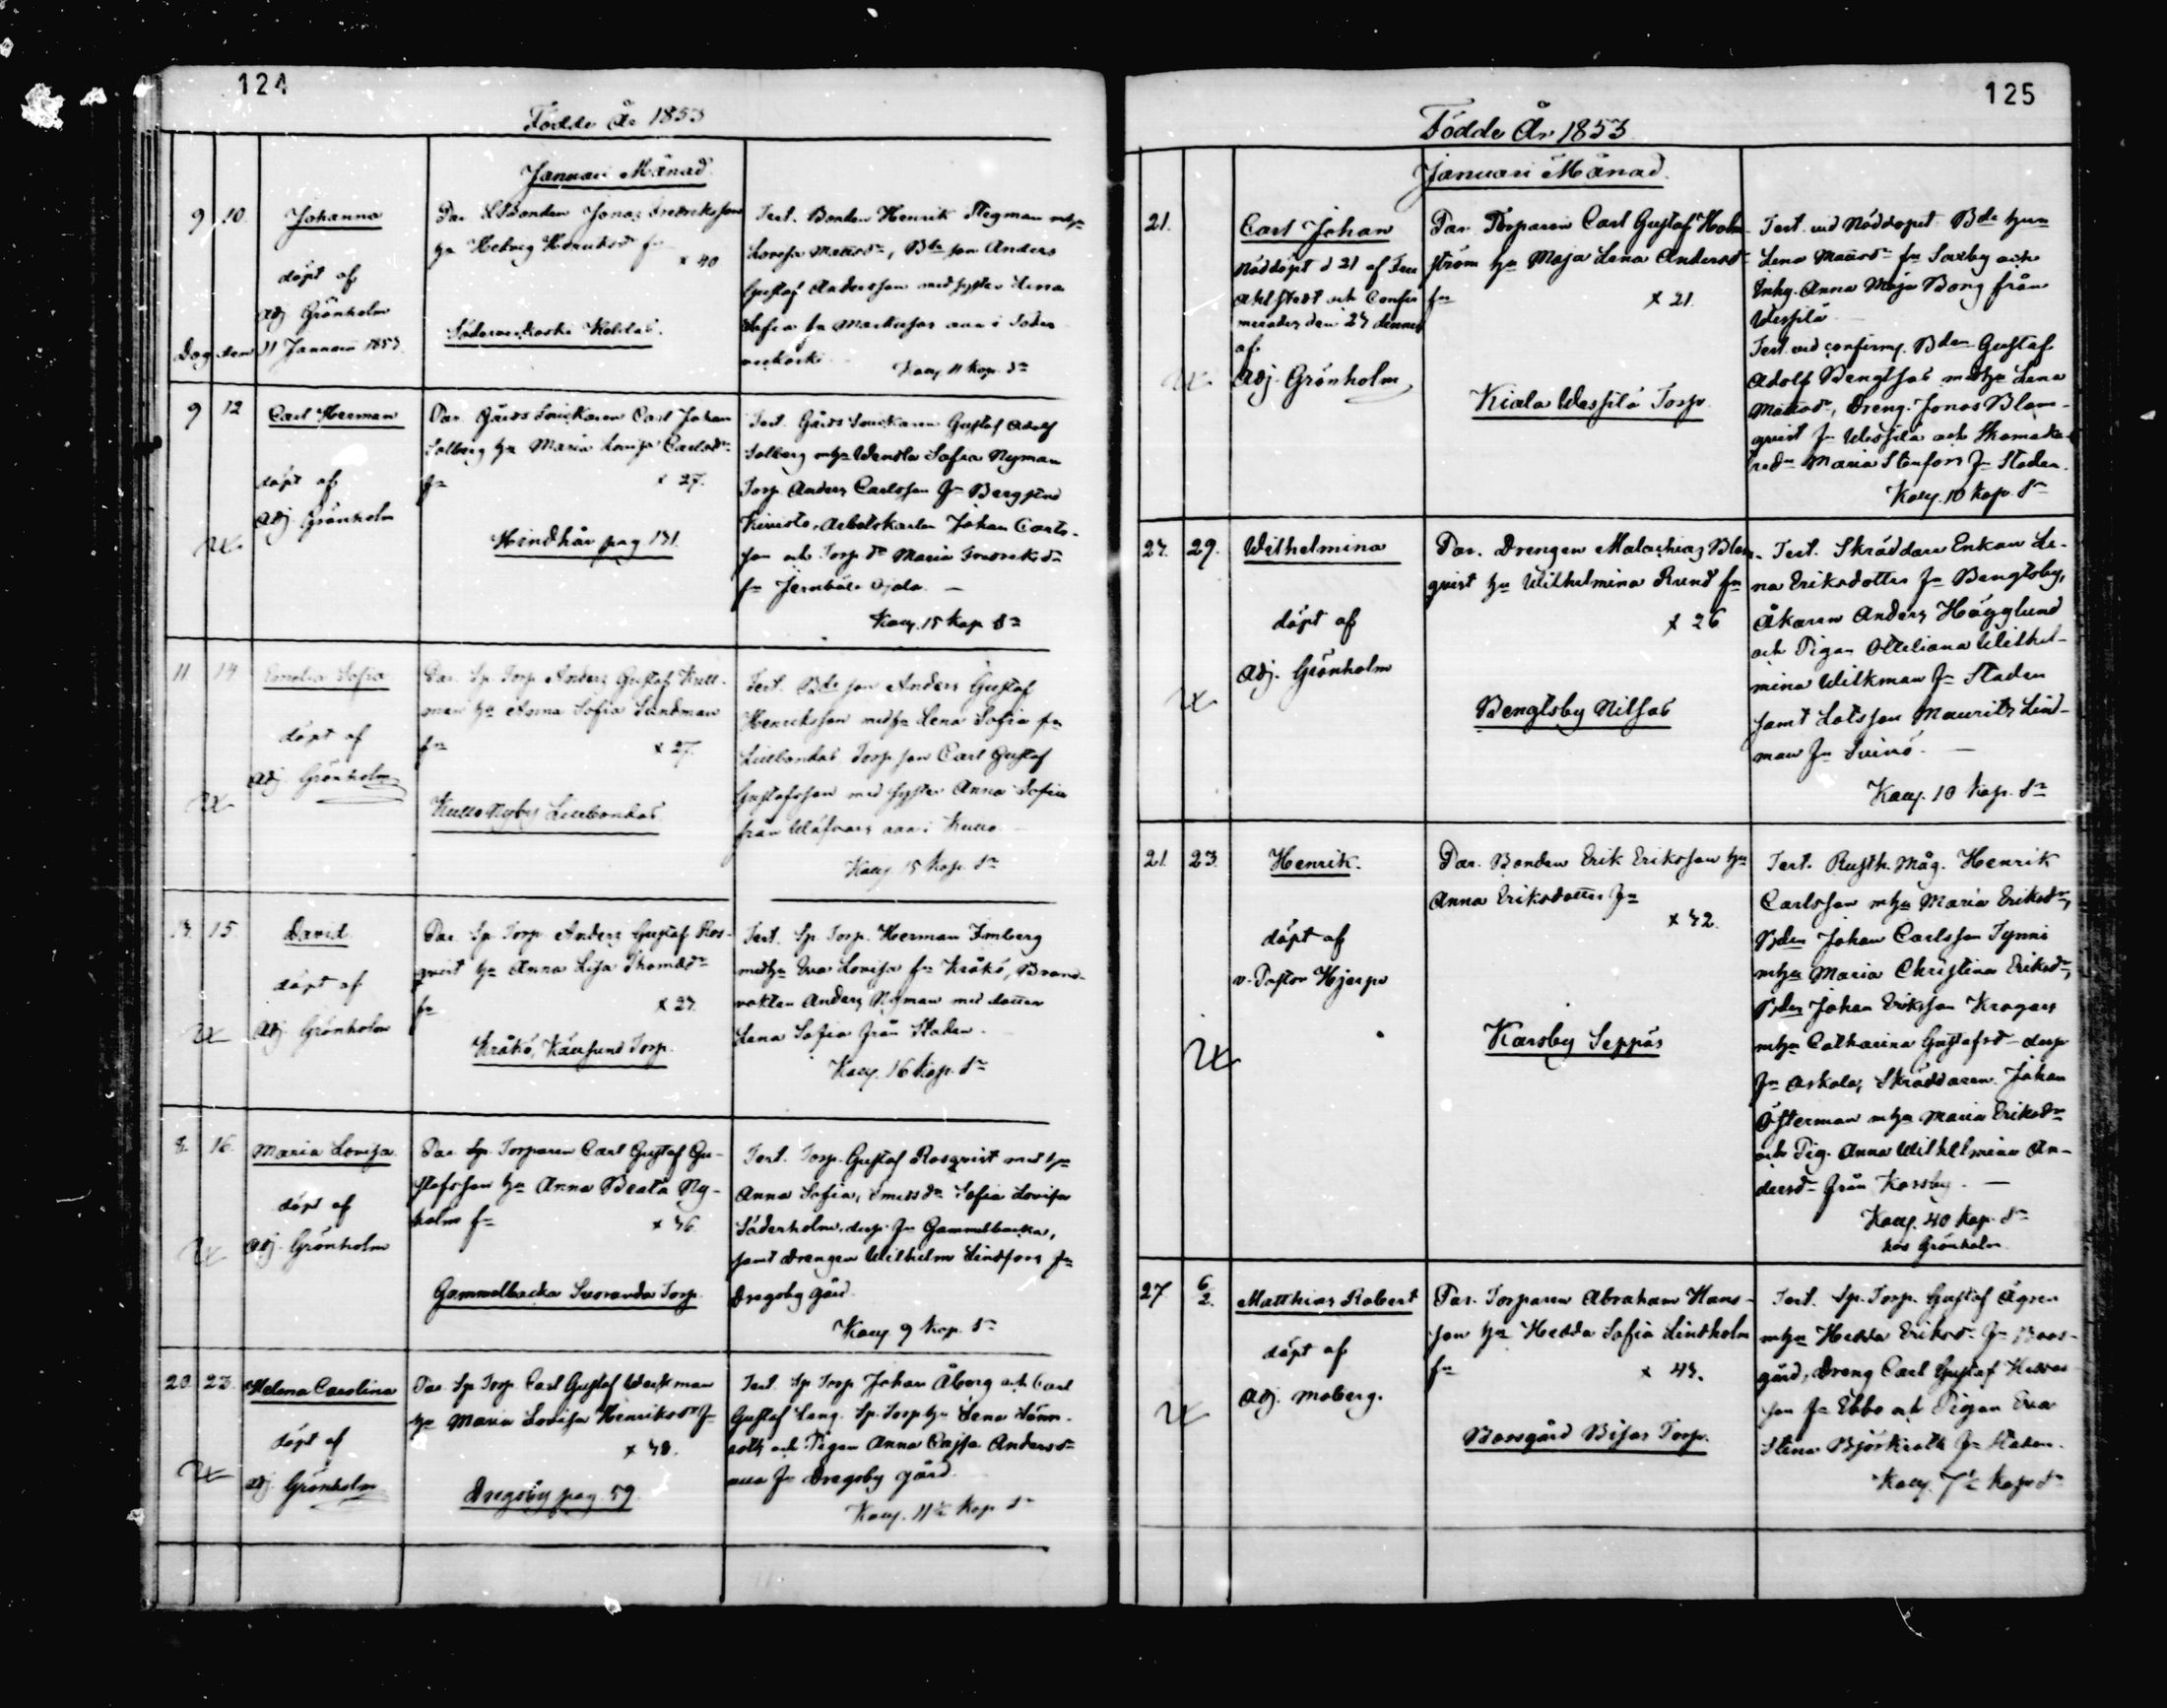 124
Födde År 1853
Januari Månad
9 10. Johanna
döpt af
Adj Grönholm
11 Januari 1853
Par Bonden Jonas Fredriksson
hu Hedvig Henriksd fr
x 40
Söderveckoski
Test. Bonden Henrik Stegman mhu
Lovisa Mattsdr, Bde son Anders
Gustaf Andersson med syster Lena
Sofia fr Markusas aaa i Söder
veckoski
Kauf. 11 kop. Sr
9 12 Carl Herman
döpt af
Adj. Grönholm
Par. Gårds Snickaren Carl Johan
Solberg hu Maria Lovisa Carlsdr
fr x 27.
Hindhår pag 131.
Test. Gårds Snickaren Gustaf Adolf
Solberg mhu Wendla Sofia Nyman
Torp. Anders Carlsson fr Bergsund
Kivisto, Arbetskarlen Johan Carls-
son och Torp dr Maria Fredriksdr
fr Jernböle Ojala. —
Kauf. 15 kop Sr
11 14 Emelia Sofia
döpt af
Adj. Grönholm
Par. Sp. Torp Anders Gustaf Kull-
man hu Anna Sofia Sundman
fr x 27.
Kullo Nyby Lillbondas
Test. Bde son Anders Gustaf
Henriksson medhu Lena Sofia fr
Lillbondas Torp son Carl Gustaf
Gustafsson med syster Anna Sofia
från aaa i Kullo. —
Kauf 15 kop. Sr
13. 15 David
döpt af
Adj. Grönholm
Par Sp Torp Anders Gustaf Ros-
qvist hu Anna Lisa Thomasdr
fr x 27.
Kråkö, Torp.
Test. Sp. Torp. Herman Imberg
medhu Eva Lovisa fr Kråkö, Brand-
vakten Anders Nyman med dotter
Lena Sofia från Staden.
Kauf. 16 kop. Sr
8. 16. Maria Lovisa
döpt af
Adj. Grönholm
Par Sp. Torparen Carl Gustaf Gu-
stafsson hu Anna Beata Ny-
holm fr x 36
Gammelbacka Svoranda Torp.
Test. Torp. Gustaf Rosqvist med hu
Anna Sofia, Smedsdr Sofia Lovisa
Söderholm, desp. fr Gammelbacka,
samt Drengen Wilhelm Lindfors fr
Dregsby gård.
Kauf. 9 kop. Sr
20. 23. Helena Carolina
döpt af
Adj. Grönholm
Par Sp Torp Carl Gustaf Werkman
hu Maria Lovisa Henriksdr fr
x 38.
Dregsby pag. 59.
Test. Sp Torp Johan Åberg och Carl
Gustaf Lång. Sp. Torp hu Lena Lönn-
roth och Pigan Anna Cajsa Andersdr
aaa fr Dregsby gård.
Kauf. 11½ kop Sr
125
Födde År 1853
Januari Månad.
21. Carl Johan
Nöddöpt d 21 af Fru
Ahlstedt och Confir
merades den 27 dennes
af
Adj. Grönholm
Par. Torparen Carl Gustaf Holm-
ström hu Maja Lena Andersd
fr x 21.
Kiala Wessilä Torp
Test. vid Nöddopet Bde hun
Lena Mattsdr fr Saxby och
Inhy. Anna Maja Borg från
Wessilä
Test. vid confirm. Bden Gustaf
Adolf Bengtsas medhu Lena
Mattsdr, Dreng. Jonas Blom-
qvist fr Wessilä och Skomaka-
re dr Maria Stenfors fr Staden.
Kauf. 10 kop. Sr
27. 29. Wilhelmina
döpt af
Adj. Grönholm
Par. Drengen Malachias Blom-
qvist hu Wilhelmina Rund fr
x 26
Bengtsby Nilsas
Test. Skräddare Enkan Le-
na Eriksdotter fr Bengtsby,
Åkaren Anders Högglund
och Pigan Otteliana Wilhel-
mina Wilkman fr Staden
samt Lotsson Mauritz Lind-
man fr Svinö. —
Kauf. 10 kop. Sr
21. 23. Henrik.
döpt af
v. Pastor Hjerpe
Par. Bonden Erik Eriksson hu
Anna Eriksdotter fr
x 32.
Karsby Seppäs
Test. Rusth. Måg. Henrik
Carlsson mhu Maria Eriksdr,
Bden Johan Carlsson Tynni
mhu Maria Christina Eriksdr,
Bden Johan Eriksson Krogars
mhu Catharina Gustafsdr desp
fr Askola, Skräddaren Johan
Österman mhu Maria Eriksdr
och Pig. Anna Wilhelmina An-
dersdr från Karsby. —
Kauf. 40 kop. Sr
hos Grönholm
27 6/2. Matthias Robert
döpt af
Adj. Moberg.
Par. Torparen Abraham Hans-
son hu Hedda Sofia Lindholm
fr x 43.
Bosgård Bisas Torp.
Test. Sp. Torp. Gustaf Ågren
mhu Hedda Eriksdr fr Boos-
gård, Dreng Carl Gustaf
son fr Ebbo och Pigan Eva
Stina Björkroth fr Staden.
Kauf. 7½ kop Sr